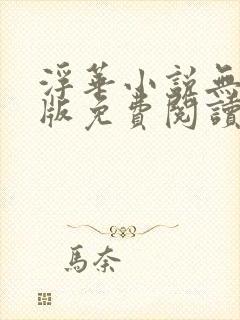 浮華小說無
版免費閱讀
馬奈